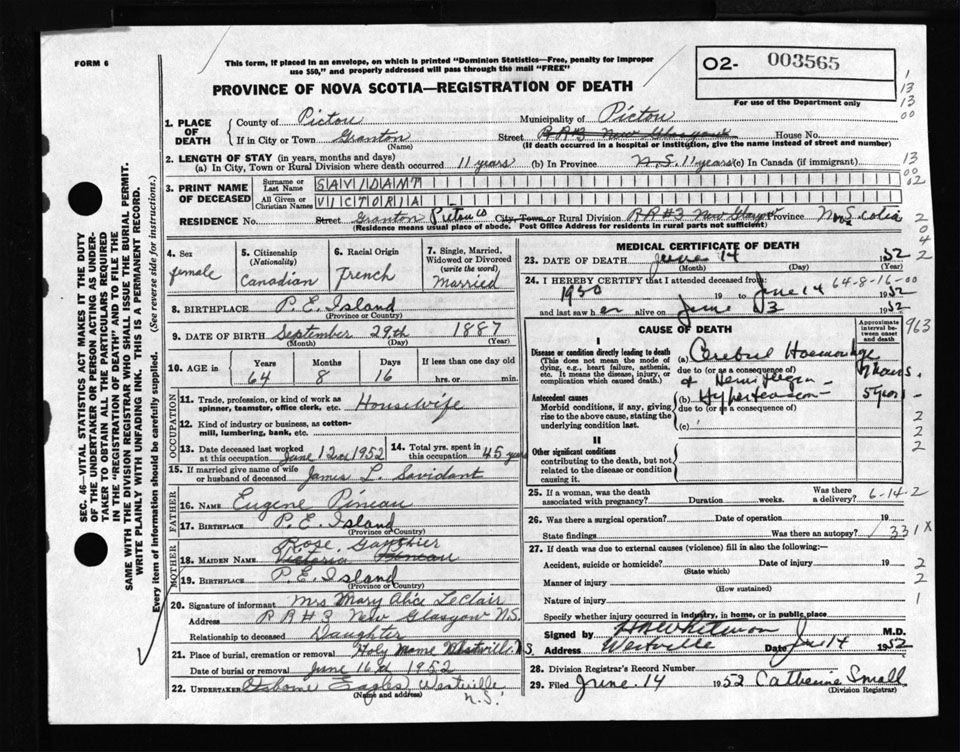 FORM 6
This form, if placed in an envelope, on which is printed "Dominion Statistics—Free, penalty for improper
use $50," and properly addressed will pass through the mail "FREE"
PROVINCE OF NOVA SCOTIA—REGISTRATION OF DEATH
O2- 003565
For use of the Department only
1. PLACE OF DEATH
County of Pictou Municipality of Pictou
If in City or Town Granton Street RR#3 New Glasgow House No.
(Name) (If death occurred in a hospital or institution, give the name instead of street and number)
2. LENGTH OF STAY (in years, months and days)
(a) In City, Town or Rural Division where death occurred 11 years (b) In Province N.S. 11 years (c) In Canada (if immigrant)
3. PRINT NAME OF DECEASED
Surname or Last Name SAVIDANT
All Given or Christian Names VICTORIA
RESIDENCE No. Street Granton Pictou Co City, Town or Rural Division RR#3 New Glasgow Province Nova Scotia
(Residence means usual place of abode. Post Office Address for residents in rural parts not sufficient)
4. Sex female
5. Citizenship (Nationality) Canadian
6. Racial Origin French
7. Single, Married, Widowed or Divorced (write the word) Married
8. BIRTHPLACE P.E. Island
(Province or Country)
9. DATE OF BIRTH September 29th 1887
(Month) (Day) (Year)
10. AGE in Years 64 Months 8 Days 16 If less than one day old hrs. or min.
OCCUPATION
11. Trade, profession, or kind of work as spinner, teamster, office clerk, etc. Housewife
12. Kind of industry or business, as cotton-mill, lumbering, bank, etc.
13. Date deceased last worked at this occupation June 12 1952
14. Total yrs. spent in this occupation 45 years
15. If married give name of wife or husband of deceased James L. Savidant
FATHER
16. NAME Eugene Pineau
17. BIRTHPLACE P.E. Island
(Province or Country)
MOTHER
Rose Gauthier
18. MAIDEN NAME Victoria Pineau
19. BIRTHPLACE P.E. Island
(Province or Country)
20. Signature of informant Mrs Mary Alice LeClair
Address RR#3 New Glasgow N.S.
Relationship to deceased Daughter
21. Place of burial, cremation or removal Holy Name Westville N.S.
Date of burial or removal June 16 1952
22. UNDERTAKER Osborne Eagles Westville N.S.
(Name and address)
MEDICAL CERTIFICATE OF DEATH
23. DATE OF DEATH June 14 1952
(Month) (Day) (Year)
24. I HEREBY CERTIFY that I attended deceased from:
1950 19 to June 14 1952
64-8-16-00
and last saw her alive on June 13 1952
CAUSE OF DEATH
Approximate interval between onset and death
I
Disease or condition directly leading to death
(This does not mean the mode of dying, e.g., heart failure, asthenia, etc. It means the disease, injury, or complication which caused death.)
(a) Cerebral Haemorrhage
due to (or as a consequence of)
Antecedent causes
Morbid conditions, if any, giving rise to the above cause, stating the underlying condition last.
(b) Hypertension
due to (or as a consequence of)
(c)
II
Other significant conditions
contributing to the death, but not related to the disease or condition causing it.
25. If a woman, was the death associated with pregnancy? Duration weeks. Was there a delivery? 6-14-2
26. Was there a surgical operation? Date of operation 19
State findings Was there an autopsy? 331X
27. If death was due to external causes (violence) fill in also the following:—
Accident, suicide or homicide? Date of injury 19
(State which)
Manner of injury
(How sustained)
Nature of injury
Specify whether injury occurred in industry, in home, or in public place
Signed by M.D.
Address Westville Date June 14 1952
28. Division Registrar's Record Number
29. Filed June 14 1952 Catherine Small
(Division Registrar)
963
SEC. 46—VITAL STATISTICS ACT MAKES IT THE DUTY
OF THE UNDERTAKER OR PERSON ACTING AS UNDER-
TAKER TO OBTAIN ALL THE PARTICULARS REQUIRED
IN THE "REGISTRATION OF DEATH" AND TO FILE THE
SAME WITH THE DIVISION REGISTRAR WHO SHALL ISSUE THE BURIAL PERMIT.
WRITE PLAINLY WITH UNFADING INK. THIS IS A PERMANENT RECORD.
Every item of information should be carefully supplied. (See reverse side for instructions.)